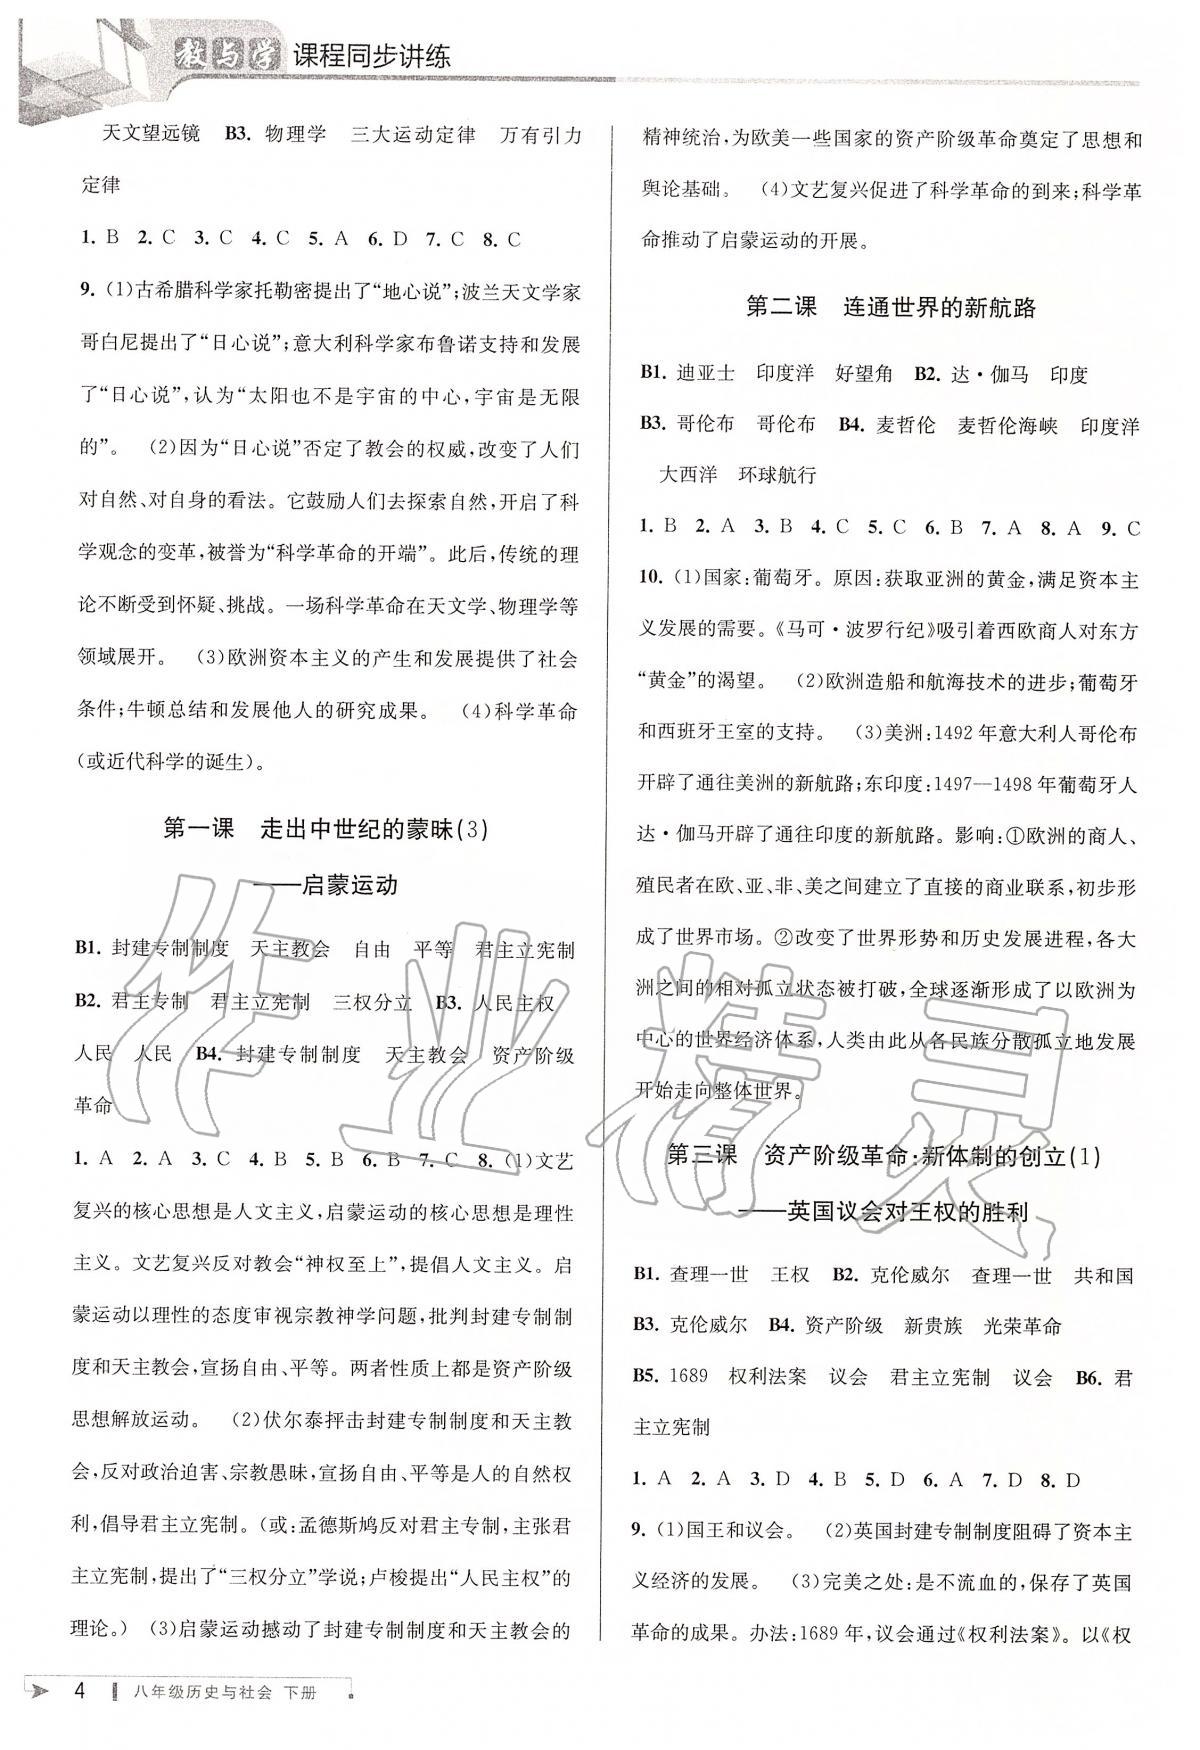 教与学 课程同步讲练
天文望远镜 B3. 物理学 三大运动定律 万有引力
定律
1. B 2. C 3. C 4. C 5. A 6. D 7. C 8. C
9. (1)古希腊科学家托勒密提出了“地心说”;波兰天文学家
哥白尼提出了“日心说”;意大利科学家布鲁诺支持和发展
了“日心说”,认为“太阳也不是宇宙的中心,宇宙是无限
的”。 (2)因为“日心说”否定了教会的权威,改变了人们
对自然、对自身的看法。它鼓励人们去探索自然,开启了科
学观念的变革,被誉为“科学革命的开端”。此后,传统的理
论不断受到怀疑、挑战。一场科学革命在天文学、物理学等
领域展开。 (3)欧洲资本主义的产生和发展提供了社会
条件;牛顿总结和发展他人的研究成果。 (4)科学革命
(或近代科学的诞生)。
第一课 走出中世纪的蒙昧(3)
——启蒙运动
B1. 封建专制制度 天主教会 自由 平等 君主立宪制
B2. 君主专制 君主立宪制 三权分立 B3. 人民主权
人民 人民 B4. 封建专制制度 天主教会 资产阶级
革命
1. A 2. A 3. C 4. B 5. B 6. B 7. C 8. (1)文艺
复兴的核心思想是人文主义,启蒙运动的核心思想是理性
主义。文艺复兴反对教会“神权至上”,提倡人文主义。启
蒙运动以理性的态度审视宗教神学问题,批判封建专制制
度和天主教会,宣扬自由、平等。两者性质上都是资产阶级
思想解放运动。 (2)伏尔泰抨击封建专制制度和天主教
会,反对政治迫害、宗教愚昧,宣扬自由、平等是人的自然权
利,倡导君主立宪制。(或:孟德斯鸠反对君主专制,主张君
主立宪制,提出了“三权分立”学说;卢梭提出“人民主权”的
理论。) (3)启蒙运动撼动了封建专制制度和天主教会的
精神统治,为欧美一些国家的资产阶级革命奠定了思想和
舆论基础。 (4)文艺复兴促进了科学革命的到来;科学革
命推动了启蒙运动的开展。
第二课 连通世界的新航路
B1. 迪亚士 印度洋 好望角 B2. 达·伽马 印度
B3. 哥伦布 哥伦布 B4. 麦哲伦 麦哲伦海峡 印度洋
大西洋 环球航行
1. B 2. A 3. B 4. C 5. C 6. B 7. A 8. A 9. C
10. (1)国家:葡萄牙。原因:获取亚洲的黄金,满足资本主
义发展的需要。《马可·波罗行纪》吸引着西欧商人对东方
“黄金”的渴望。 (2)欧洲造船和航海技术的进步;葡萄牙
和西班牙王室的支持。 (3)美洲:1492年意大利人哥伦布
开辟了通往美洲的新航路;东印度:1497—1498年葡萄牙人
达·伽马开辟了通往印度的新航路。影响:①欧洲的商人、
殖民者在欧、亚、非、美之间建立了直接的商业联系,初步形
成了世界市场。②改变了世界形势和历史发展进程,各大
洲之间的相对孤立状态被打破,全球逐渐形成了以欧洲为
中心的世界经济体系,人类由此从各民族分散孤立地发展
开始走向整体世界。
第三课 资产阶级革命:新体制的创立(1)
——英国议会对王权的胜利
B1. 查理一世 王权 B2. 克伦威尔 查理一世 共和国
B3. 克伦威尔 B4. 资产阶级 新贵族 光荣革命
B5. 1689 权利法案 议会 君主立宪制 议会 B6. 君
主立宪制
1. A 2. A 3. D 4. B 5. D 6. A 7. D 8. D
9. (1)国王和议会。 (2)英国封建专制制度阻碍了资本主
义经济的发展。 (3)完美之处:是不流血的,保存了英国
革命的成果。办法:1689年,议会通过《权利法案》。以《权
作业精灵
4 八年级历史与社会 下册